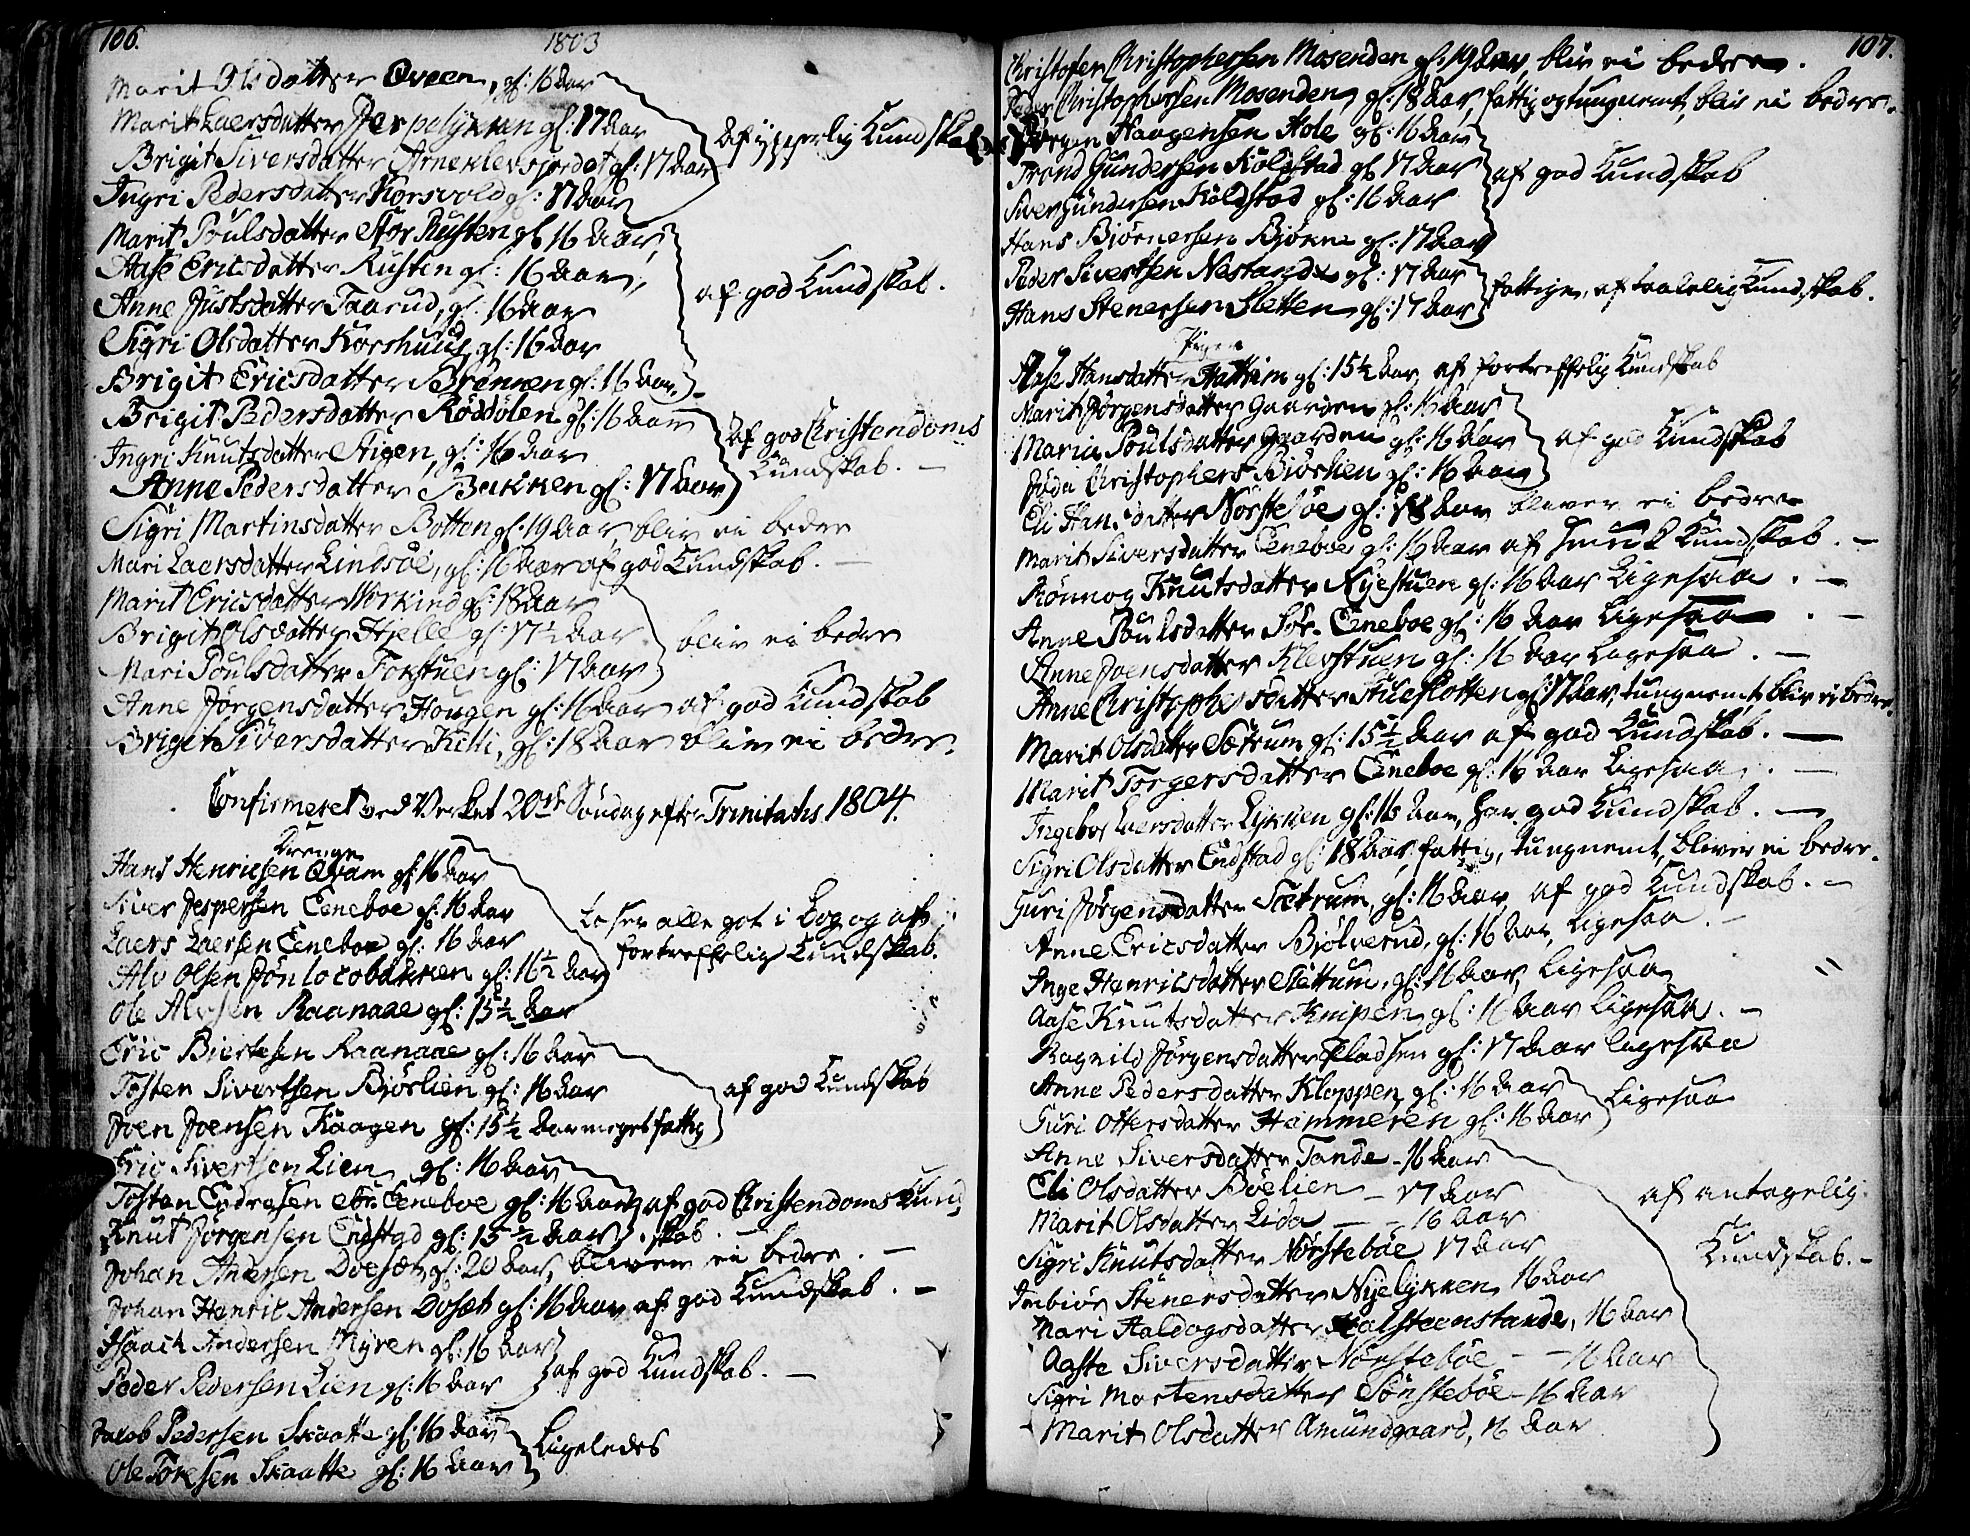 106.
1803
Marit Olsdatter Qveen, gl: 16 Aar
Marit Laersdatter Jerpelykken gl: 17 Aar
Brigit Siversdatter Arneklevsjordet gl: 17 Aar
af ypperlig Kundskab
Ingri Pedersdatter Korsvold gl: 17 Aar
Marit Poulsdatter Stor Rusten gl 16 Aar,
Aase Ericsdatter Rusten gl: 16 Aar,
Anne Justsdatter Taarud, gl. 16 Aar
af god Kundskab.
Sigri Olsdatter Korshuus, gl: 16 Aar
Brigit Ericsdatter Brennen gl: 16 Aar.
Brigit Pedersdatter Röddölen gl: 16 Aar
Ingri Knutsdatter Stigen, gl: 16 Aar
af god Christendoms
Kundskab. -
Anne Pedersdatter Bakken gl: 17 Aar
Sigri Martinsdatter Botten gl. 19 Aar, bliv ei bedre
Mari Laersdatter Lindsöe, gl: 16 Aar af god Kundskab. -
Marit Ericsdatter Workind gl: 18 Aar
Brigit Olsdatter Hjelle gl: 17½ Aar.
bliv ei bedre
Mari Poulsdatter Fokstuen gl: 17 Aar
Anne Jörgensdatter Hougen gl: 16 Aar af god Kundskab
Brigit Siversdatter Kitti, gl: 18 Aar bliv ei bedre.
Confirmeret ved Verket 20de Söndag efter Trinitatis 1804.
Drenge
Hans Henricsen Qvam gl: 16 Aar
Siver Jespersen Eeneboe gl: 16 Aar
Laers Laersen Eeneboe gl: 16 Aar
Læser alle got i Bog og af
fortreffelig Kundskab.
Alv Olsen Jönlocobakken gl: 16½ Aar
Ole Alvsen Raanaae gl: 15½ Aar
Eric Biertesen Raanaae gl: 16 Aar
Tosten Sivertsen Bjöslien gl: 16 Aar
af god Kundskab
Joen Joensen Kaagen gl: 15½ Aar meget fattig
Eric Sivertsen Lien, gl: 16 Aar
Tosten Endresen Sör. Eeneboe gl: 16 Aar af god Christendoms Kund,
Knut Jörgensen Endstad gl: 15½ Aar. skab. -
Johan Andersen Dosæt gl: 20 Aar, bliver ei bedre. -
Johan Henric Andersen Dosæt gl: 16 Aar af god Kundskab. -
Isaach Andersen Myren gl: 16 Aar
Peder Pedersen Lien gl: 16 Aar
af god Kundskab. -
Jacob Pedersen Skaatte gl: 16 Aar
Ole Toresen Skaatte gl: 16 Aar
Ligeledes
107.
Christofer Christophersen Mosenden gl: 19 Aar, bliv ei bedre.
Peder Christophersen Mosenden, gl: 18 Aar, fattig og tungnemt, bliv ei bedre.
Jörgen Haagensen Hole gl: 16 Aar
Trond Gundersen Kölpstad gl 17 Aar
af god Kundskab
Siver Gundersen Koldstad gl: 16 Aar
Hans Biörnersen Bjökne gl: 17 Aar
Peder Sivertsen Nestande gl: 17 Aar
fattige, af taalelig Kundskab.
Hans Stenersen Sletten gl: 17 Aar
Piger
Aase Hansdatter Hattrim gl: 15½ Aar af fortreffelig Kundskab
Marit Jörgensdatter Gaarden gl: 16 Aar
Maria Poulsdatter Gaarden gl: 16 Aar
af god Kundskab
Juda Christophers Biörken gl: 16 Aar
Eli Hansdatter Nörsteböe gl: 18 Aar bliver ei bedre
Marit Siversdatter Eeneboe gl: 16 Aar af smuck Kundskab. -
Rönnog Knutsdatter Nyestuen gl: 16 Aar Ligesaa. -
Anne Poulsdatter Sör. Eeneboe gl: 16 Aar Ligesaa. -
Anne Joensdatter Klevstuen gl: 16 Aar Ligesaa. -
Anne Christophersdatter Stueflotten gl: 17 Aar, tungnemt, bliv ei bedre.
Marit Olsdatter Sætrum gl: 15½ Aar af god Kundskab. -
Marit Torgersdatter Eeneboe gl: 16 Aar Ligesaa. -
Ingebor Laersdatter Lykken gl: 16 Aar, har god Kundskab. -
Sigri Olsdatter Endstad gl: 18 Aar, fattig, tungnemt, bliver ei bedre.
Guri Jörgensdatter Sætrum, gl: 16 Aar, af god Kundskab. -
Anne Ericsdatter Bjölverud, gl: 16 Aar, Ligesaa. -
Inge Henricsdatter Slettum, gl: 16 Aar, Ligesaa
Aase Knutsdatter Knipen gl: 16 Aar Ligesaa. -
Ragnild Jörgensdatter Pladsen gl: 17 Aar Ligesaa
Anne Pedersdatter Kloppen gl: 16 Aar
Ligesaa
Guri Ottersdatter Hammeren gl: 16 Aar
Anne Siversdatter Tande - 16 Aar
Eli Olsdatter Böelien - 17 Aar
af antagelig
Marit Olsdatter Lida - - 16 Aar
Kundskab. -
Sigri Knutsdatter Nörsteböe 17 Aar
Imbiör Stenersdatter Nyelykken 16 Aar
Mari Haldogsdatter Halsteenstande, 16 Aar
Aaste Siversdatter Nörsteböe - - 16 Aar
Sigri Mortensdatter Sönsteböe - 16 Aar
Marit Olsdatter Amundgaard, 16 Aar